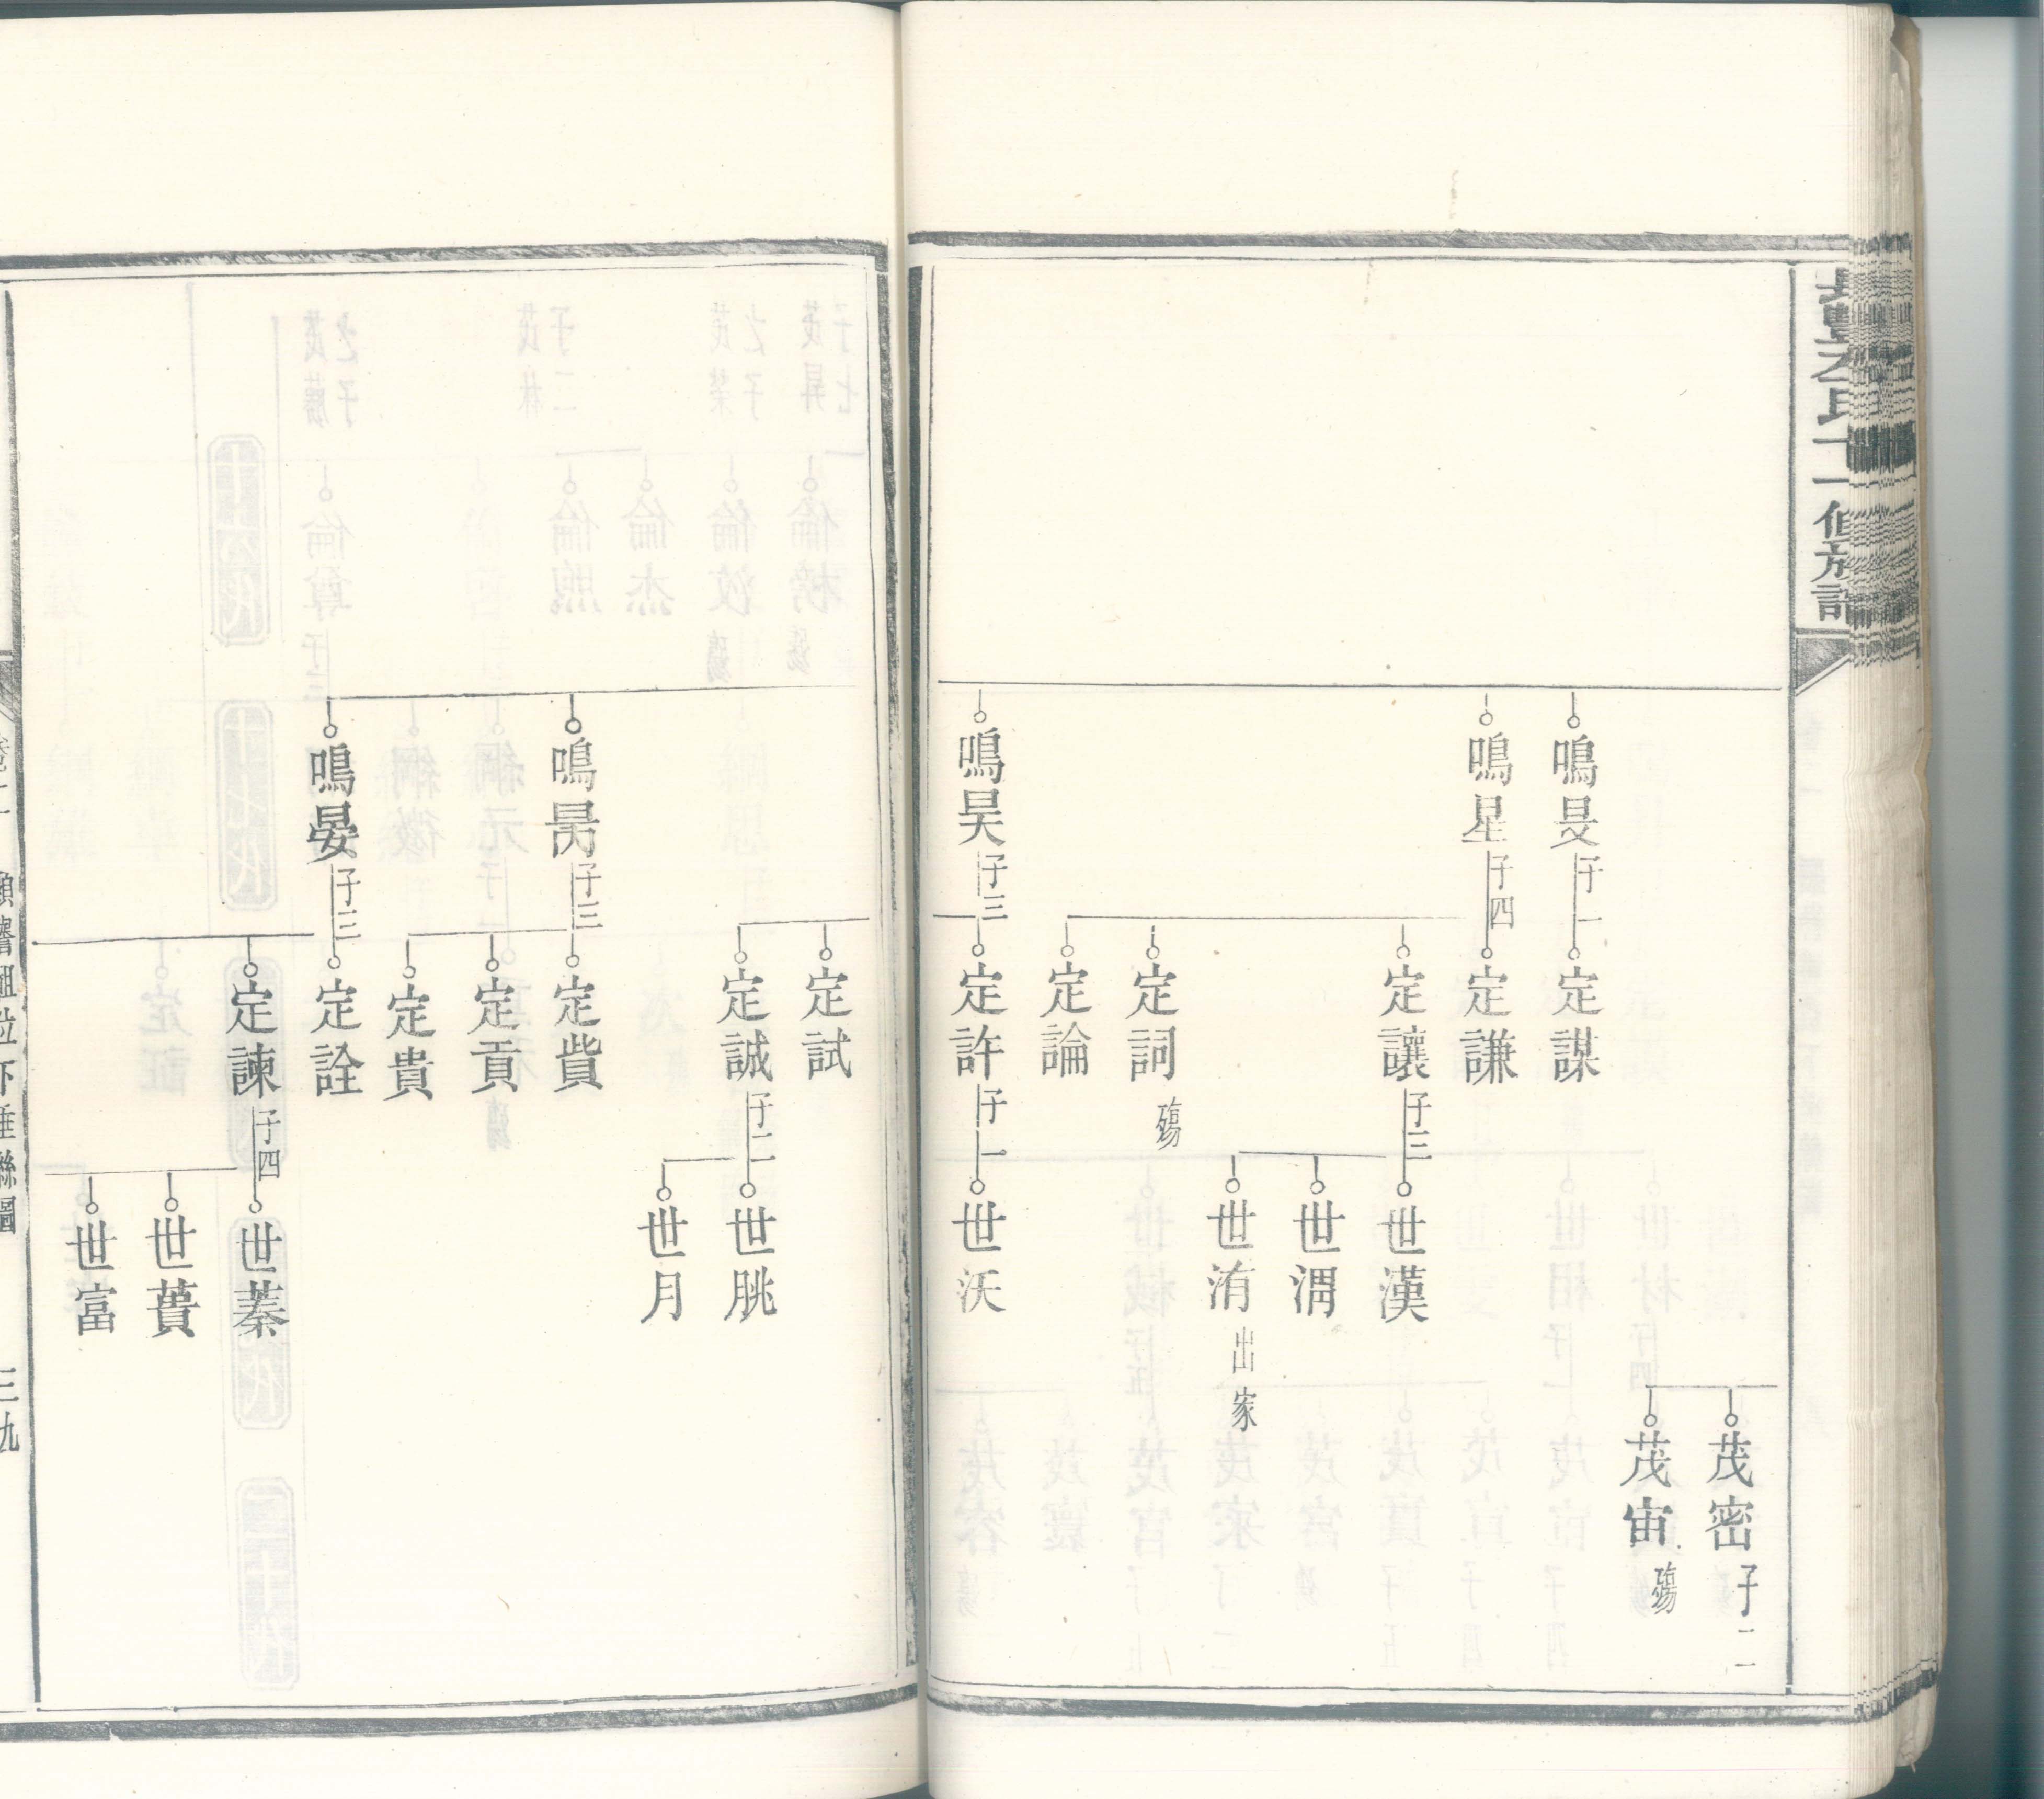 氏十一修族譜
鳴旻 子一
定謀
茂密 子二
茂宙 殤
鳴星 子四
定謙
定讓 子三
世漢
世渭
世洧 出家
定詞 殤
定論
鳴昊 子三
定許 子一
世沃
定試
定誠 子二
世朓
世月
鳴昺 子三
定貲
定貢
定貴
鳴晏 子三
定詮
定諫 子四
世蓁
世蕡
世富
下垂絲圖
三九